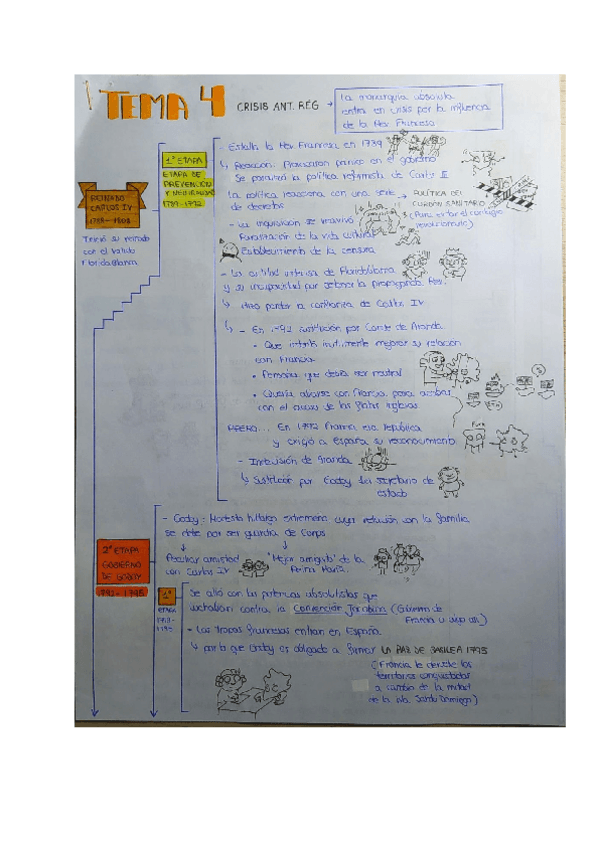 TEMA 4
CRISIS ANT. RÉG
La monarquía absoluta
entra en crisis por la influencia
de la Rev Francesa
REINADO
CARLOS IV
1788-1808
Terminó su reinado
con el valido
Floridablanca
1ª ETAPA
ETAPA DE
PREVENCIÓN
Y NEUTRALIDAD
1789-1792
- Estalla la Rev Francesa en 1789
↳ Reacción: Provocaron pánico en el gobierno
Se paralizó la política reformista de Carlos III
La política reacciona con una serie
de decretos
→ POLÍTICA DEL
CORDÓN SANITARIO
(Para evitar el contagio
revolucionario)
- La inquisición se reavivó
Paralización de la vida cultural
Establecimiento de la censura
- La actitud intensa de Floridablanca
y su incapacidad por detener la propaganda Rev.
↳ Hizo perder la confianza de Carlos IV
↳ - En 1792 sustitución por Conde de Aranda.
• Que intentó inútilmente mejorar su relación
con Francia
• Pensaba que debía ser neutral
• Quería aliarse con Francia para acabar
con el acoso de las flotas inglesas
PERO... En 1792 Francia era república
y exigió a España su reconocimiento
- Indecisión de Aranda
↳ Sustitución por Godoy 1er secretario de
estado
2ª ETAPA
GOBIERNO
DE GODOY
1792-1795
- Godoy = Modesto hidalgo extremeño cuya relación con la familia
se debe por ser guardia de Corps
Peculiar amistad
con Carlos IV
"Mejor amiguito" de la
Reina María.
1ª
ETAPA
1793-
1795
Se alió con las potencias absolutistas que
luchaban contra la Convención Jacobina (Gobierno de
- Las tropas francesas entran en España.
↳ por lo que Godoy es obligado a firmar LA PAZ DE BASILEA 1795
(Francia le devuelve los
territorios conquistados
a cambio de la mitad
de la isla Santo Domingo)